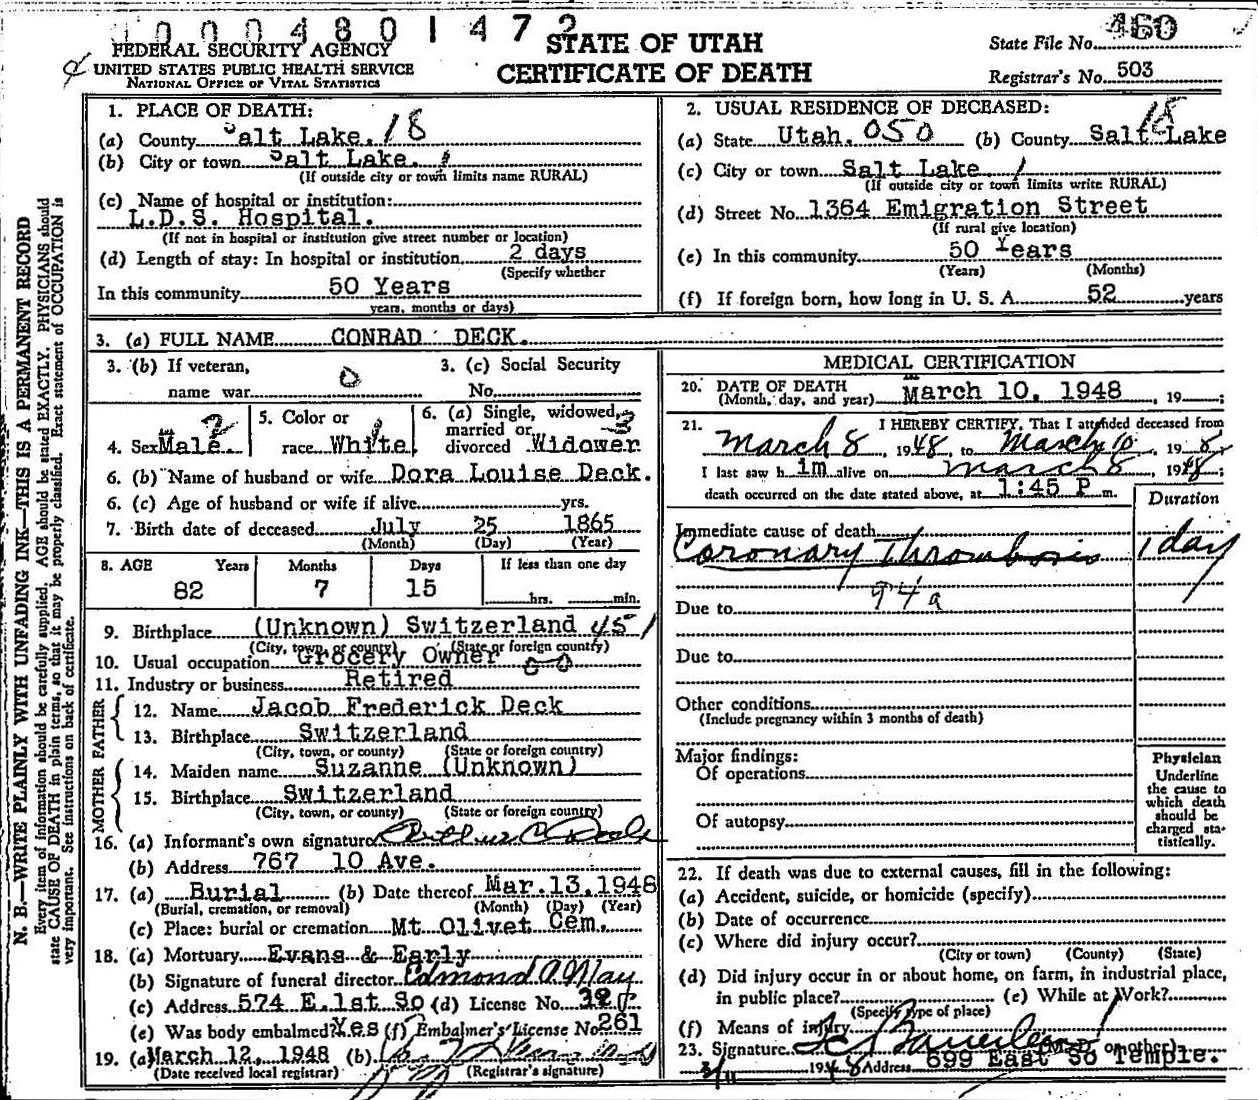 0 0 0 4 8 0 1 4 7 2
FEDERAL SECURITY AGENCY
UNITED STATES PUBLIC HEALTH SERVICE
NATIONAL OFFICE OF VITAL STATISTICS
STATE OF UTAH
CERTIFICATE OF DEATH
State File No. 460
Registrar's No. 503
N. B.—WRITE PLAINLY WITH UNFADING INK—THIS IS A PERMANENT RECORD
Every item of information should be carefully supplied. AGE should be stated EXACTLY. PHYSICIANS should
state CAUSE OF DEATH in plain terms, so that it may be properly classified. Exact statement of OCCUPATION is
very important. See instructions on back of certificate.
1. PLACE OF DEATH:
(a) County Salt Lake. 18
(b) City or town Salt Lake. 1
(If outside city or town limits name RURAL)
(c) Name of hospital or institution:
L.D.S. Hospital.
(If not in hospital or institution give street number or location)
(d) Length of stay: In hospital or institution 2 days
(Specify whether
In this community 50 Years
years, months or days)
2. USUAL RESIDENCE OF DECEASED:
(a) State Utah. 050 (b) County Salt Lake 18
(c) City or town Salt Lake 1
(If outside city or town limits write RURAL)
(d) Street No. 1364 Emigration Street
(If rural give location)
(e) In this community 50 Years
(Years) (Months)
(f) If foreign born, how long in U. S. A. 52 years
3. (a) FULL NAME CONRAD DECK.
3. (b) If veteran,
name war 0
3. (c) Social Security
No.
4. Sex Male 2
5. Color or
race White 1
6. (a) Single, widowed, 3
married or
divorced Widower
6. (b) Name of husband or wife Dora Louise Deck.
6. (c) Age of husband or wife if alive yrs.
7. Birth date of deceased July 25 1865
(Month) (Day) (Year)
8. AGE Years Months Days If less than one day
82 7 15 hrs. min.
9. Birthplace (Unknown) Switzerland 451
(City, town, or county) (State or foreign country)
10. Usual occupation Grocery Owner
11. Industry or business Retired
FATHER
12. Name Jacob Frederick Deck
13. Birthplace Switzerland
(City, town, or county) (State or foreign country)
MOTHER
14. Maiden name Suzanne (Unknown)
15. Birthplace Switzerland
(City, town, or county) (State or foreign country)
16. (a) Informant's own signature
(b) Address 767 10 Ave.
17. (a) Burial (b) Date thereof Mar. 13, 1948
(Burial, cremation, or removal) (Month) (Day) (Year)
(c) Place: burial or cremation Mt Olivet Cem.
18. (a) Mortuary Evans & Early
(b) Signature of funeral director Edmond A. May
(c) Address 574 E. 1st So (d) License No.
(e) Was body embalmed? Yes (f) Embalmer's License No. 261
19. (a) March 12, 1948 (b)
(Date received local registrar) (Registrar's signature)
MEDICAL CERTIFICATION
20. DATE OF DEATH
(Month, day, and year) March 10, 1948, 19 ;
21. I HEREBY CERTIFY, That I attended deceased from
March 8, 1948, to March 10, 1948,
I last saw him alive on March 8, 1948;
death occurred on the date stated above, at 1:45 P m.
Duration
Immediate cause of death
Coronary Thrombosis 1 day
94a
Due to
Due to
Other conditions
(Include pregnancy within 3 months of death)
Major findings:
Of operations
Of autopsy
Physician
Underline
the cause to
which death
should be
charged sta-
tistically.
22. If death was due to external causes, fill in the following:
(a) Accident, suicide, or homicide (specify)
(b) Date of occurrence
(c) Where did injury occur?
(City or town) (County) (State)
(d) Did injury occur in or about home, on farm, in industrial place,
in public place? (e) While at Work?
(Specify type of place)
(f) Means of injury
23. Signature (M.D. or other)
3/11 1948 Address 699 East So Temple.